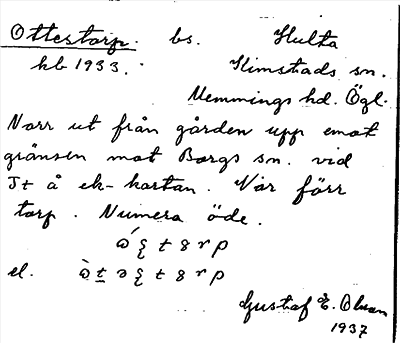 Ottestorp. bs. Hulta
hb 1933. Kimstads sn.
Memmings hd. Ögl.
Norr ut från gården upp emot
gränsen mot Borgs sn. vid
J+ å ek-kartan. Var förr
torp. Numera öde.
el.
Gustaf E. Olsson
1937